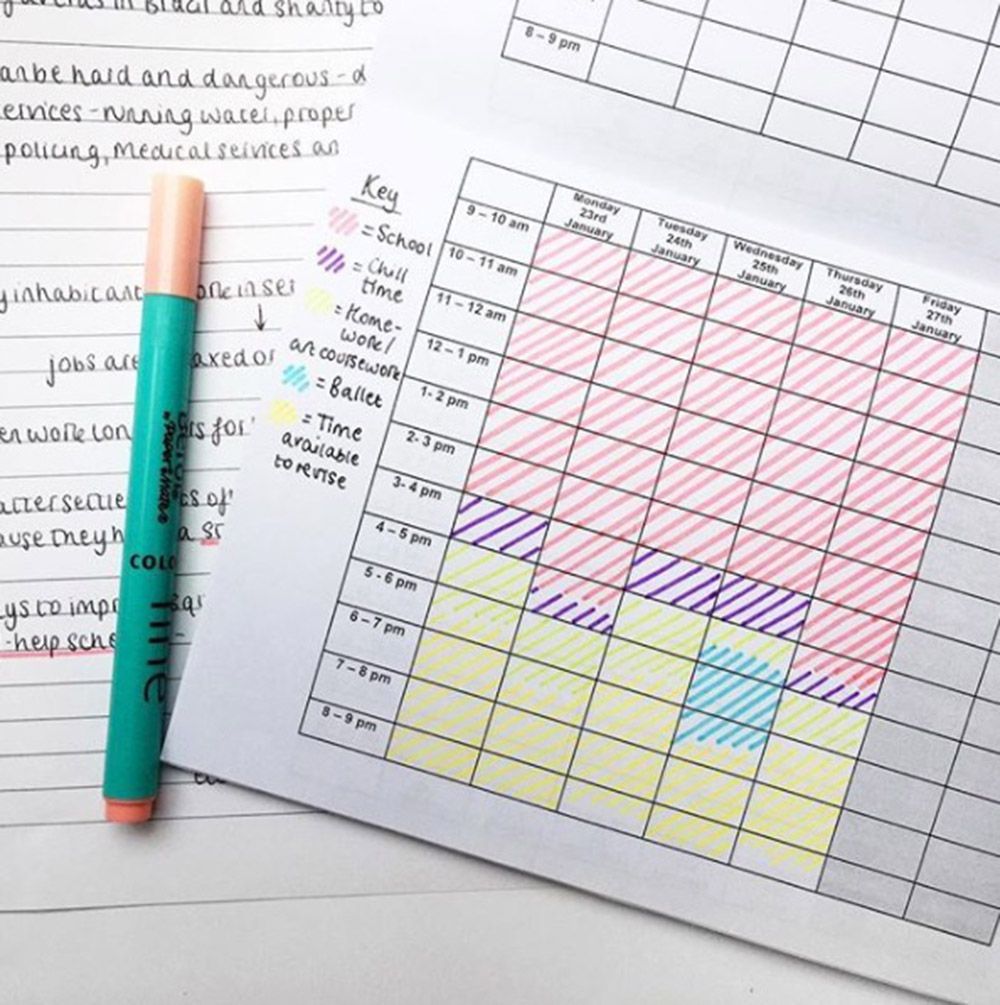 in Brazil and shanty to
can be hard and dangerous - d
services - running water, proper
policing, Medical services an
y inhabitant
one in sei
jobs are
taxed or
work lon
rs for
cs of
ause they h
a
ys to impr
- help sche
COLO
fine
8 – 9 pm
Key
= School
= Chill
time
= Home-
work/
art coursework
= Ballet
= Time
available
to revise
Monday
23rd
January
Tuesday
24th
January
Wednesday
25th
January
Thursday
26th
January
Friday
27th
January
9 – 10 am
10 – 11 am
11 – 12 am
12 – 1 pm
1- 2 pm
2- 3 pm
3- 4 pm
4 – 5 pm
5 - 6 pm
6 – 7 pm
7 – 8 pm
8 – 9 pm